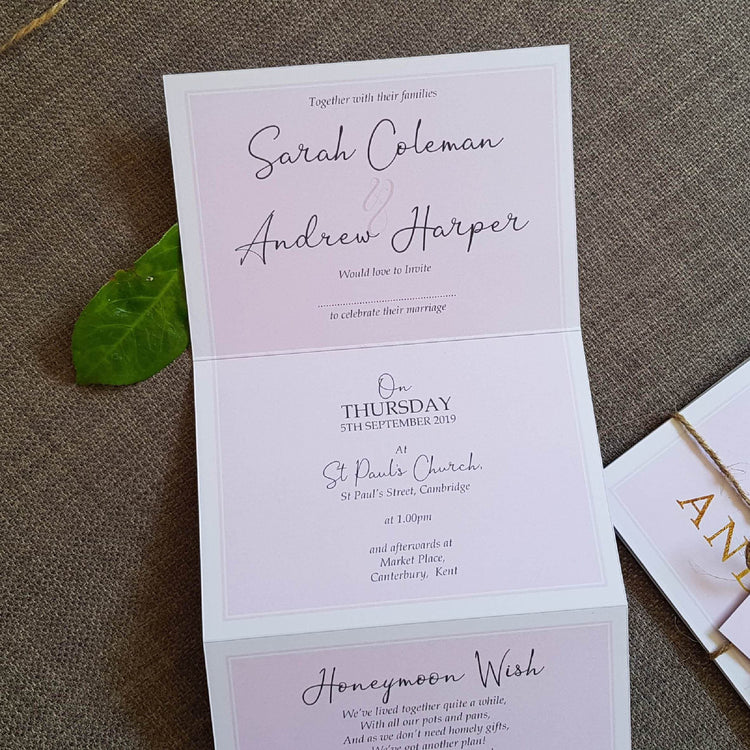 Together with their families
Sarah Coleman
&
Andrew Harper
Would love to Invite
to celebrate their marriage
On
THURSDAY
5TH SEPTEMBER 2019
At
St Paul's Church,
St Paul's Street, Cambridge
at 1.00pm
and afterwards at
Market Place,
Canterbury, Kent
Honeymoon Wish
We've lived together quite a while,
With all our pots and pans,
And as we don't need homely gifts,
We've got another plan!
AN